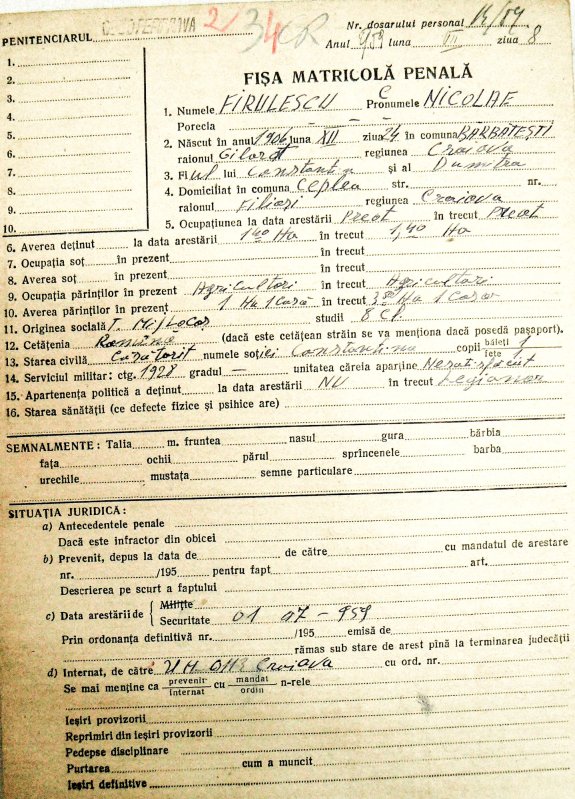 PENITENCIARUL 2/34 CR Nr. dosarului personal
Anul 959 luna III ziua 8
1.
2.
3.
4.
5.
6.
7.
8.
9.
10.
FIȘA MATRICOLĂ PENALĂ
1. Numele FIRULESCU C Pronumele NICOLAE
Porecla
2. Născut în anul 1906 luna XII ziua 24 în comuna BĂRBĂTEȘTI
raionul Gilort regiunea Craiova
3. Fiul lui Constantin și al Dumitra
4. Domiciliat în comuna Ceplea str. nr.
raionul Filiași regiunea Craiova
5. Ocupațiunea la data arestării Preot în trecut Preot
6. Averea deținut la data arestării 1 40 Ha în trecut 1,40 Ha
7. Ocupația soț în prezent în trecut
8. Averea soț în prezent în trecut
9. Ocupația părinților în prezent Agricultori în trecut Agricultori
10. Averea părinților în prezent 1 Ha 1 Casă în trecut Ha 1 Casă
11. Originea socială Ț. Mijlocaș studii 8 Cl
12. Cetățenia Română (dacă este cetățean străin se va menționa dacă posedă pașaport).
13. Starea civilă Căsătorit numele soției Constantina copii băieți 1 fete
14. Serviciul militar: ctg. 1928 gradul — unitatea căreia aparține Nesatisfăcut
15. Apartenența politică a deținut la data arestării NU în trecut Legionar
16. Starea sănătății (ce defecte fizice și psihice are)
SEMNALMENTE: Talia m. fruntea nasul gura bărbia
fața ochii părul sprîncenele barba
urechile mustața semne particulare
SITUAȚIA JURIDICĂ:
a) Antecedentele penale
Dacă este infractor din obicei
b) Prevenit, depus la data de de către cu mandatul de arestare
nr. /195 pentru fapt art.
Descrierea pe scurt a faptului
c) Data arestării de Miliție
Securitate 01 07 - 959
Prin ordonanța definitivă nr. /195 emisă de
rămas sub stare de arest pînă la terminarea judecății
d) Internat, de către Craiova cu ord. nr.
Se mai menține ca prevenit internat cu mandat ordin n-rele
Ieșiri provizorii
Reprimiri din ieșiri provizorii
Pedepse disciplinare
Purtarea cum a muncit
Ieșiri definitive